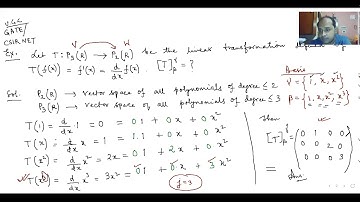 UGC
GATE/
CSIR NET
V W
Ex. Let T: P₃(R) → P₂(R) be the linear transformation
T(f(x)) = f'(x) = d/dx f(x). [T]ᵧᵦ = ?
Basis
γ = {1, x, x²}
β = {1, x, x², x³}
Sol. P₂(R) → vector space of all polynomials of degree ≤ 2
P₃(R) → vector space of all polynomials of degree ≤ 3
T(1) = d/dx 1 = 0 = 0·1 + 0x + 0x²
T(x) = d/dx x = 1 = 1·1 + 0·x + 0x²
T(x²) = d/dx x² = 2x = 0·1 + 2x + 0x²
T(x³) = d/dx x³ = 3x² = 0·1 + 0·x + 3x²
j=3
Then
[T]ᵧᵦ = (0 1 0 0
0 0 2 0
0 0 0 3)
= Ans.